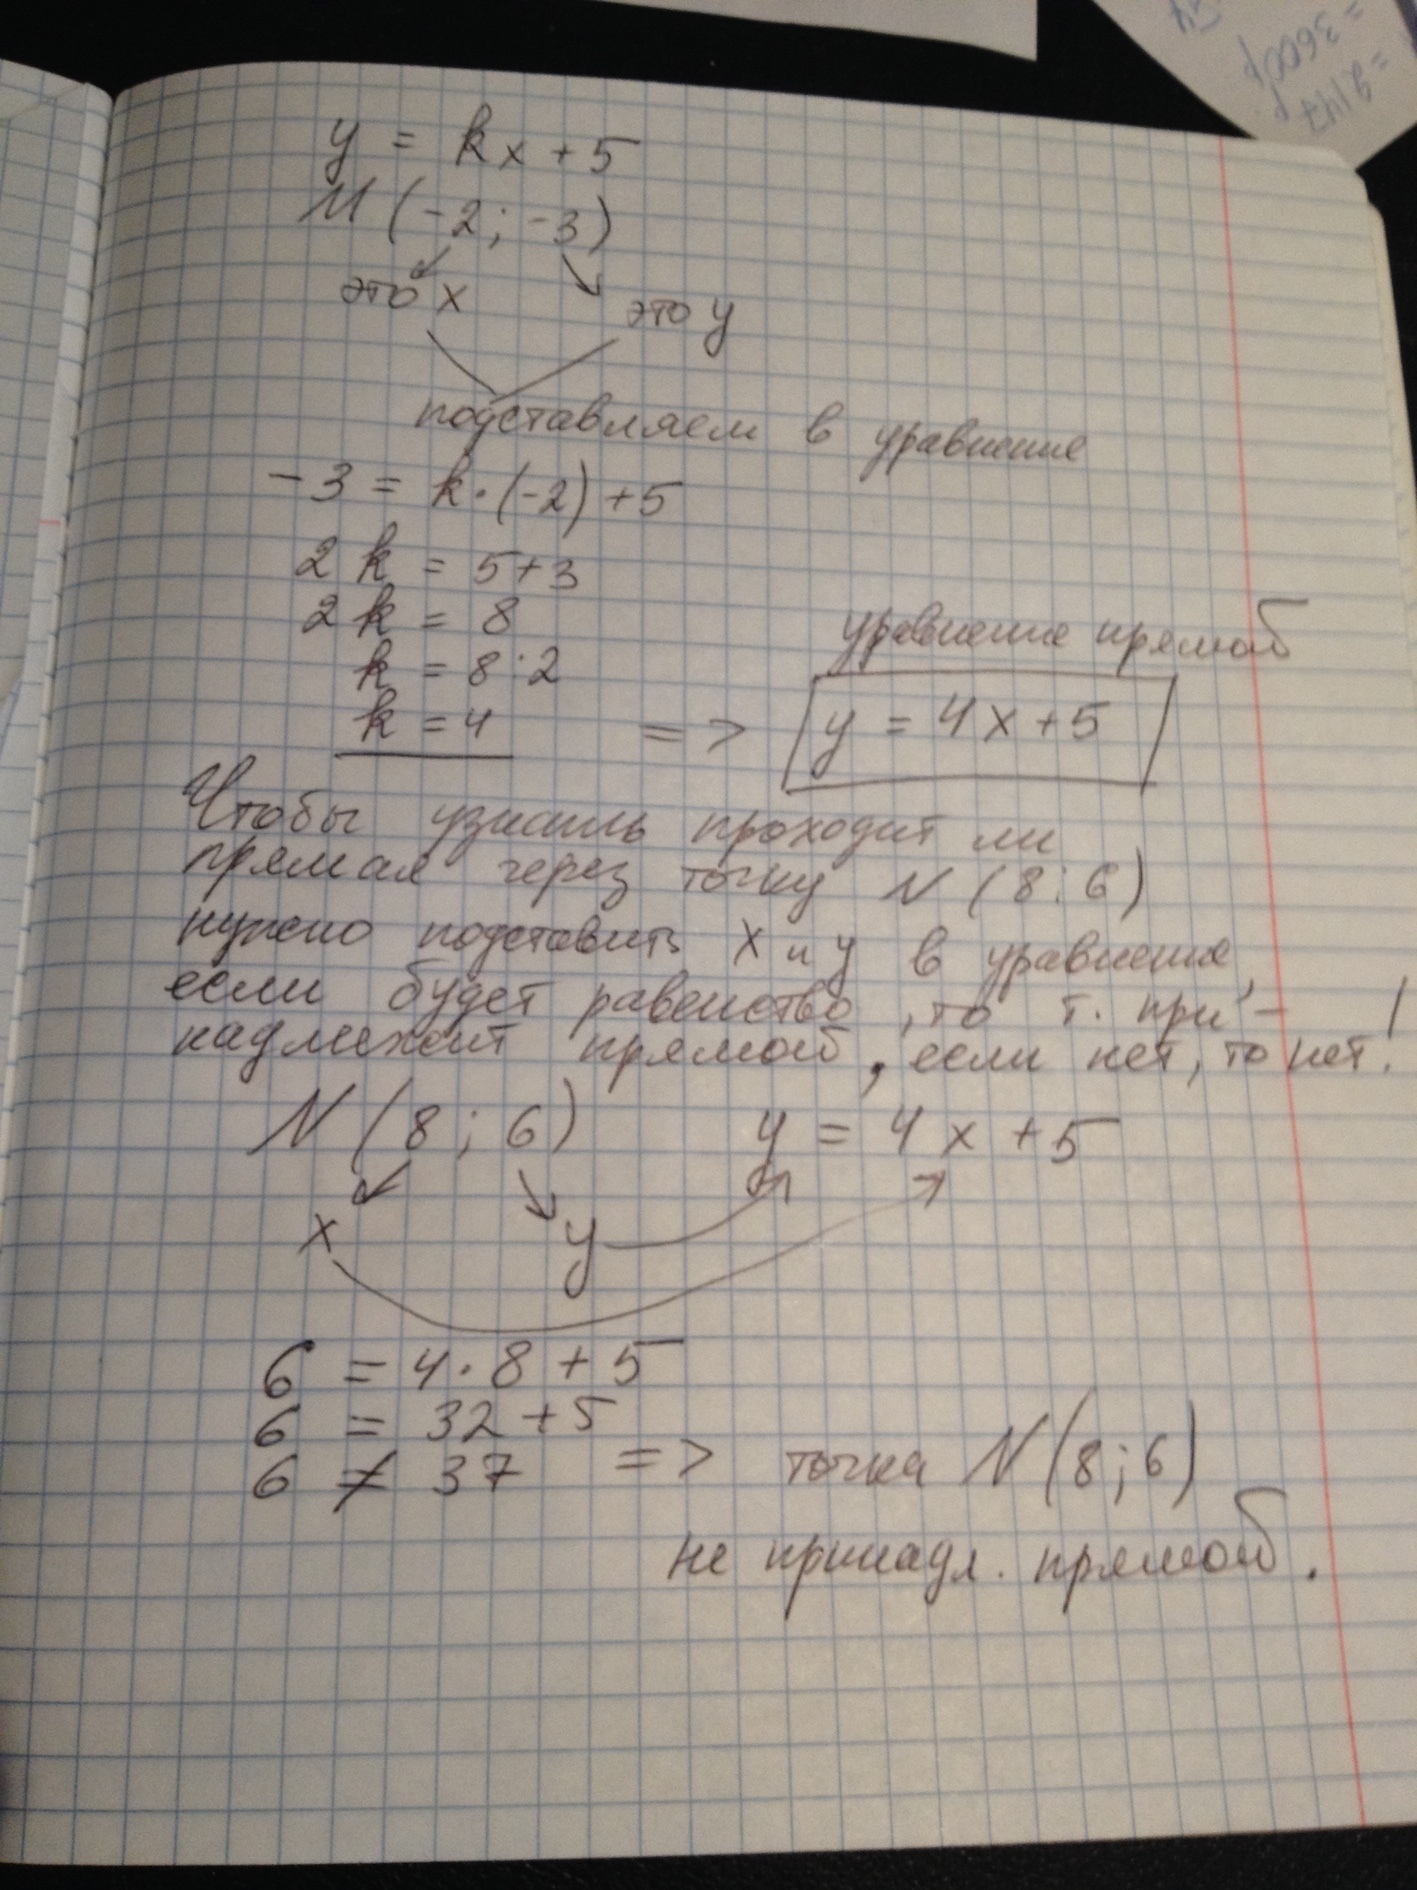 y = kx + 5
M (-2; -3)
это x это y
подставляем в уравнение
-3 = k·(-2) + 5
2k = 5+3
2k = 8
k = 8:2
уравнение прямой
k = 4 => y = 4x+5
Чтобы узнать проходит ли
прямая через точку N (8; 6)
нужно подставить x и y в уравнение,
если будет равенство, то т. при-
надлежит прямой, если нет, то нет!
N (8; 6) y = 4x + 5
x y
6 = 4·8 + 5
6 = 32 + 5
6 ≠ 37 => точка N (8; 6)
не принадл. прямой.
= 3600р
= 2147р.